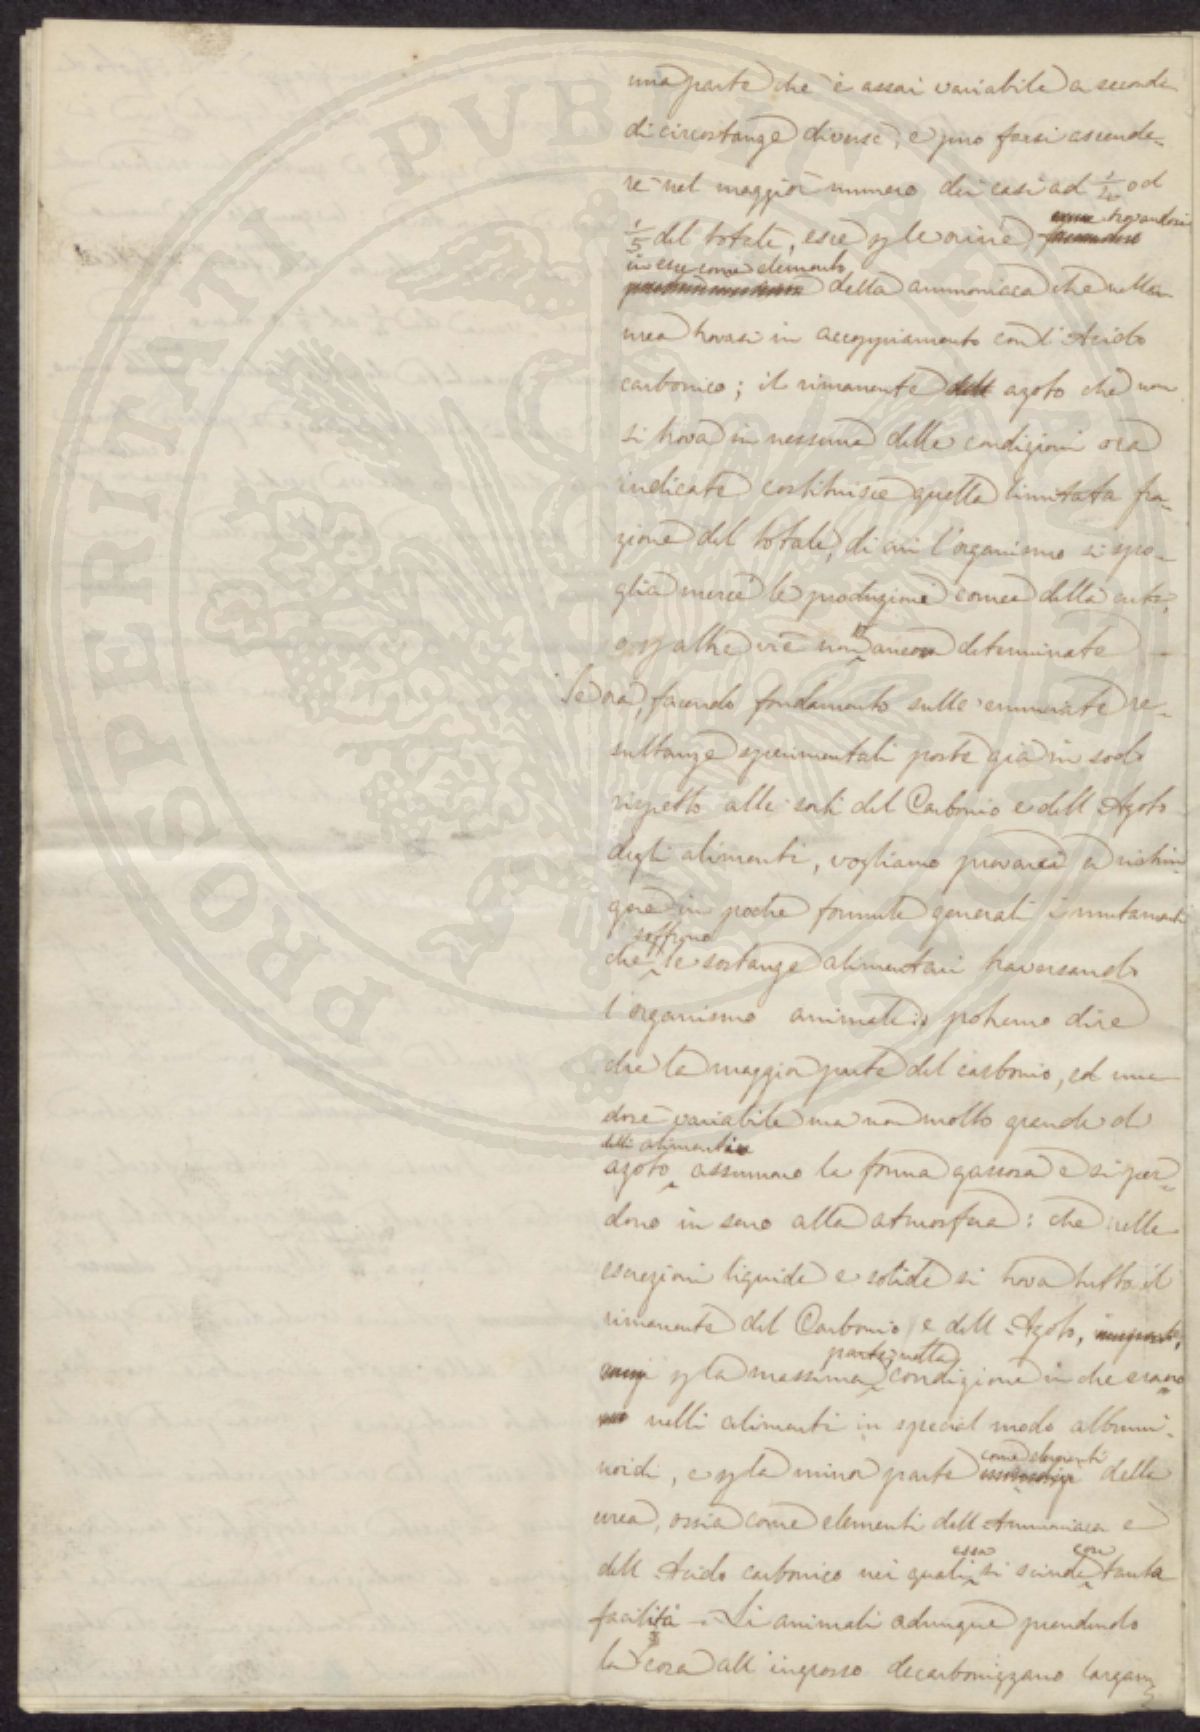 una parte che è assai variabile a seconda
di circostanze diverse, e può farsi ascende-
re nel maggior numero dei casi ad 1/4 od
trovandosi
1/5 del totale, esce p le orine
in esse come elemento
della ammoniaca che nella
urea trovasi in accoppiamento con l'Acido
carbonico; il rimanente dell azoto che non
si trova in nessuna delle condizioni ora
indicate costituisce quella limitata fra-
zione del totale, di cui l'organismo si spo-
glia mercè le produzioni cornee della cute,
o p altre vie non ancora determinate —
Se ora, facendo fondamento sulle enunciate re-
sultanze sperimentali poste già in sodo
rispetto alle sorti del Carbonio e dell Azoto
degli alimenti, vogliamo provarci a ristrin
gere in poche formule generali i mutamenti
soffrono
che le sostanze alimentari traversando
l'organismo animale; potremo dire
che la maggior parte del carbonio, ed una
dose variabile ma non molto grande d
delli alimenti
azoto assumono la forma gassosa e si per-
dono in seno alla atmosfera: che nelle
escrezioni liquide e solide si trova tutto il
rimanente del Carbonio e dell Azoto,
parte nella
p la massima condizione in che erano
nelli alimenti in special modo albumi-
noidi, e p la minor parte come elementi della
urea, ossia come elementi dell Ammoniaca e
essa con
dell Acido carbonico nei quali si scinde tanta
facilità — Li animali adunque prendendo
la cosa all ingrosso decarbonizzano largam